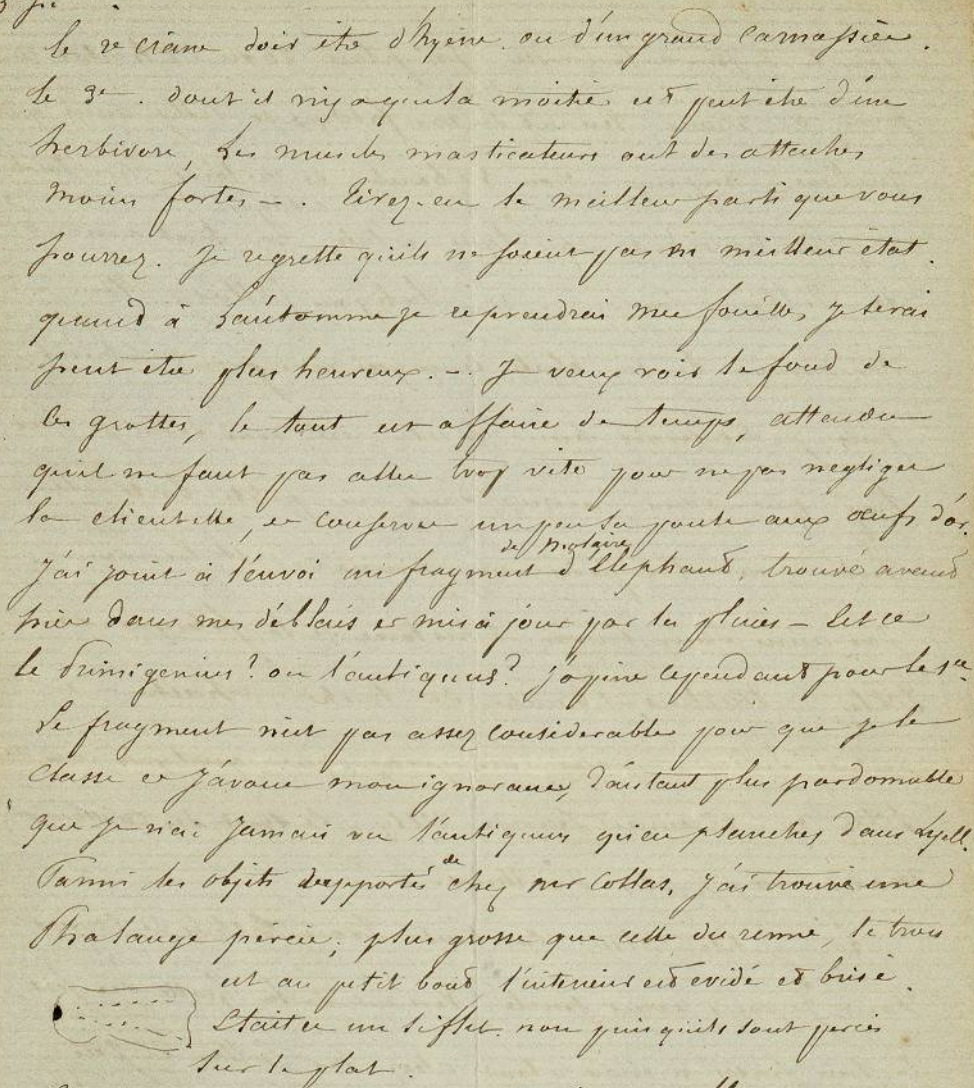 le 2e crâne doit être d'hyène ou d'un grand Carnassier.
le 3e. dont il n'y a que la moitié est peut être d'un
herbivore, Les muscles masticateurs ont des attaches
moins fortes — . Tirez-en le meilleur parti que vous
pourrez. Je regrette qu'ils ne soient pas en meilleur état.
quand à L'automne je reprendrai mes fouilles, je serai
peut être plus heureux. — . Je veux voir le fond de
ces grottes, le tout est affaire de temps, attendu
qu'il ne faut pas aller trop vite pour ne pas negliger
la clientelle, et conserver un peu la poule aux œufs d'or.
J'ai joint à l'envoi un fragment de molaire d'Elephant, trouvé avant
hier dans mes déblais et mis à jour par les pluies — Est ce
le Primigenius? ou l'antiquus? J'opine cependant pour le 1er
Le fragment n'est pas assez considerable pour que je le
classe et J'avoue mon ignorance, d'autant plus pardonnable
que je n'ai Jamais vu l'antiquus qu'en planches dans Lyell.
Parmi les objets rapportés de chez mr Collas, J'ai trouvé une
Phalange percée, plus grosse que celle du renne, le trou
est au petit bout l'interieur est evidé et brisé.
Etait ce un sifflet. non puisqu'ils sont percés
sur le plat.